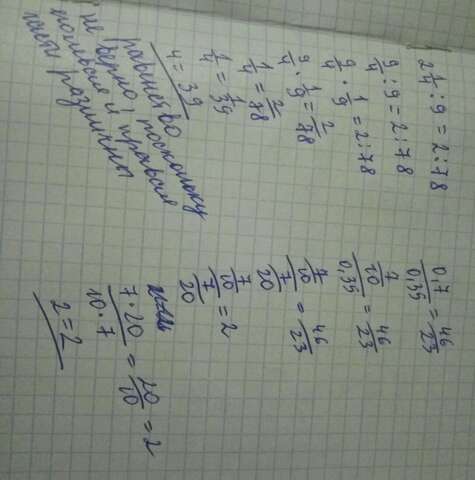 2 1/4 : 9 = 2 : 78
9/4 : 9 = 2 : 78
9/4 · 1/9 = 2 : 78
9/4 · 1/9 = 2/78
1/4 = 2/78
1/4 = 1/39
4 = 39
равенство
не верно, поскольку
левая и правая
части различны
0,7/0,35 = 46/23
7/10 / 0,35 = 46/23
7/10 / 7/20 = 46/23
7/10 / 7/20 = 2
7·20/10·7 = 20/10 = 2
2 = 2